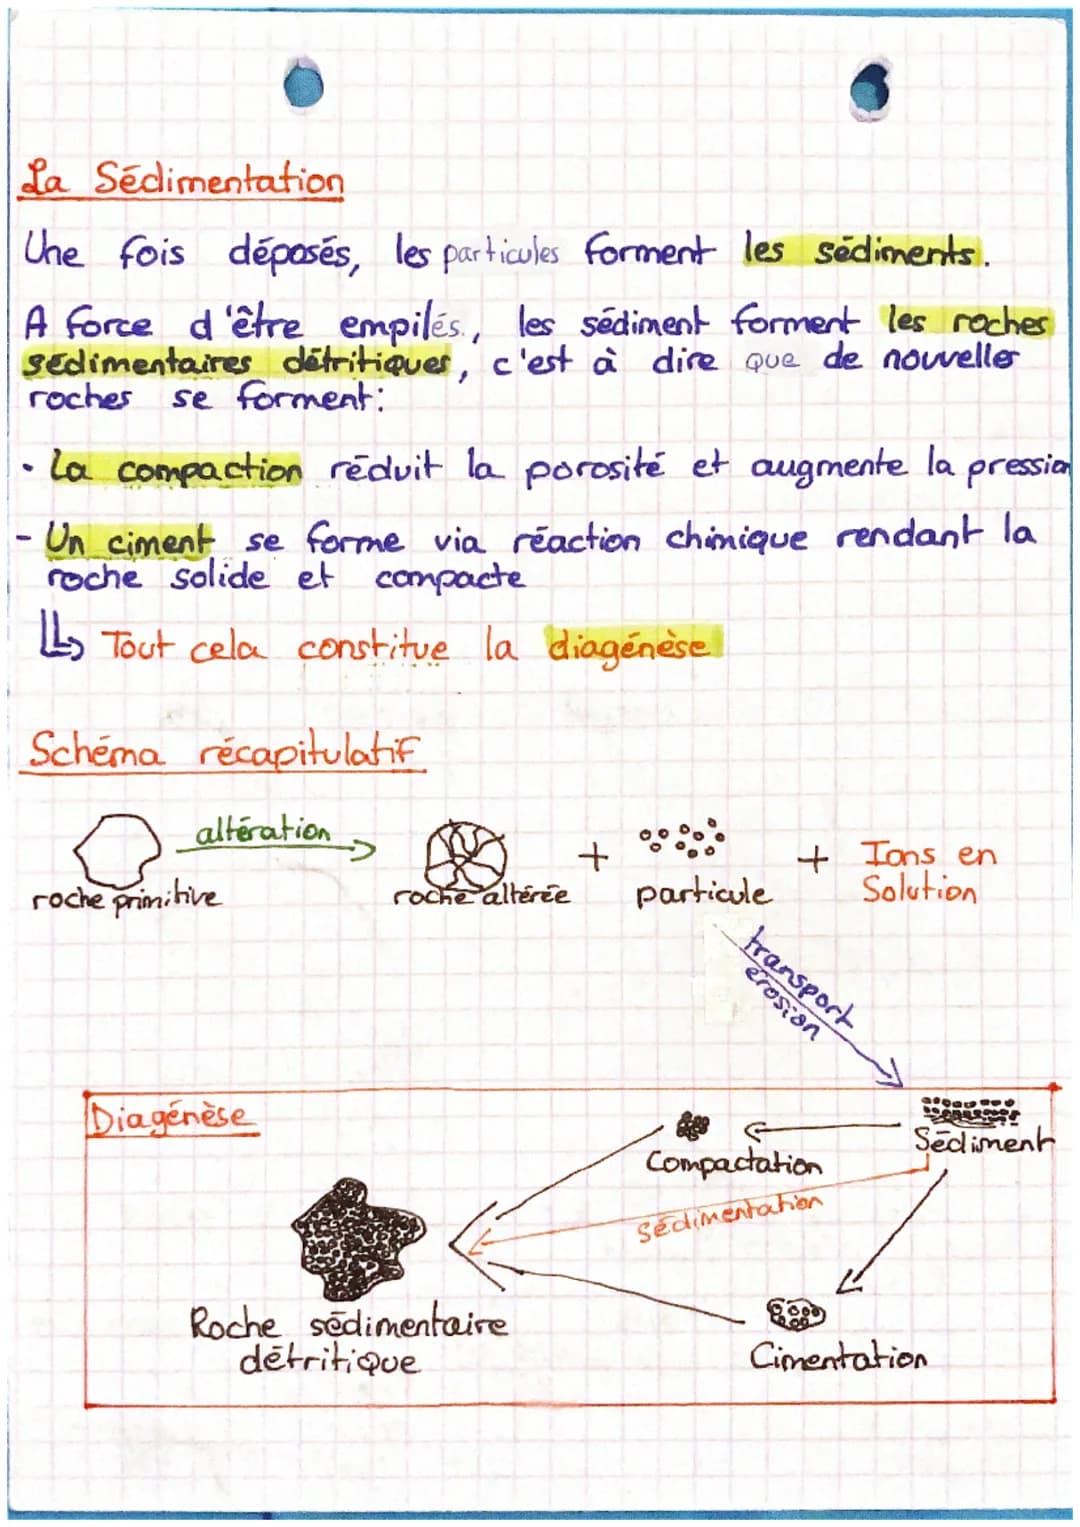 La Sédimentation
Une fois déposés, les particules forment les sédiments.
A force d'être empilés., les sédiment forment les roches
sédimentaires détritiques, c'est à dire que de nouvelles
roches se forment:
- La compaction réduit la porosité et augmente la pression
- Un ciment se forme via réaction chimique rendant la
roche solide et compacte
Tout cela constitue la diagénèse
Schéma récapitulatif
altération
+ + Ions en
Solution
roche primitive roche altérée particule
transport
érosion
Diagénèse
Sédiment
Compactation
sédimentation
Roche sédimentaire
détritique
Cimentation